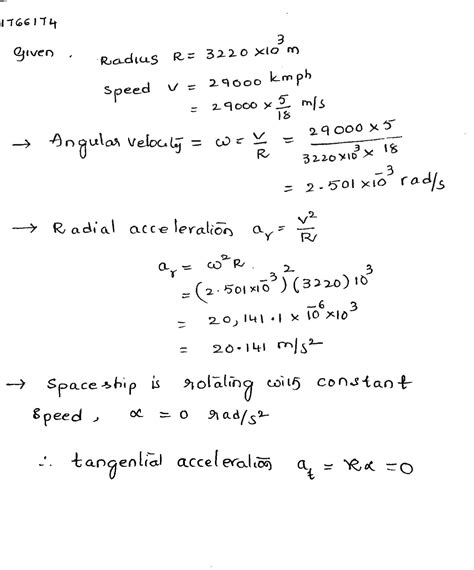 1766174
Given . Radius R = 3220 ×10³ m
Speed V = 29000 kmph
= 29000 × 5/18 m/s
→ Angular velocity = ω = V/R = 29000 × 5 / 3220×10³ × 18
= 2.501×10⁻³ rad/s
→ Radial acceleration aᵣ = V²/R
aᵣ = ω²R.
= (2.501×10⁻³)² (3220) 10³
= 20,141.1 × 10⁻⁶ × 10³
= 20.141 m/s²
→ Spaceship is rotating with constant
speed, α = 0 rad/s²
∴ tangential acceleration aₜ = Rα = 0